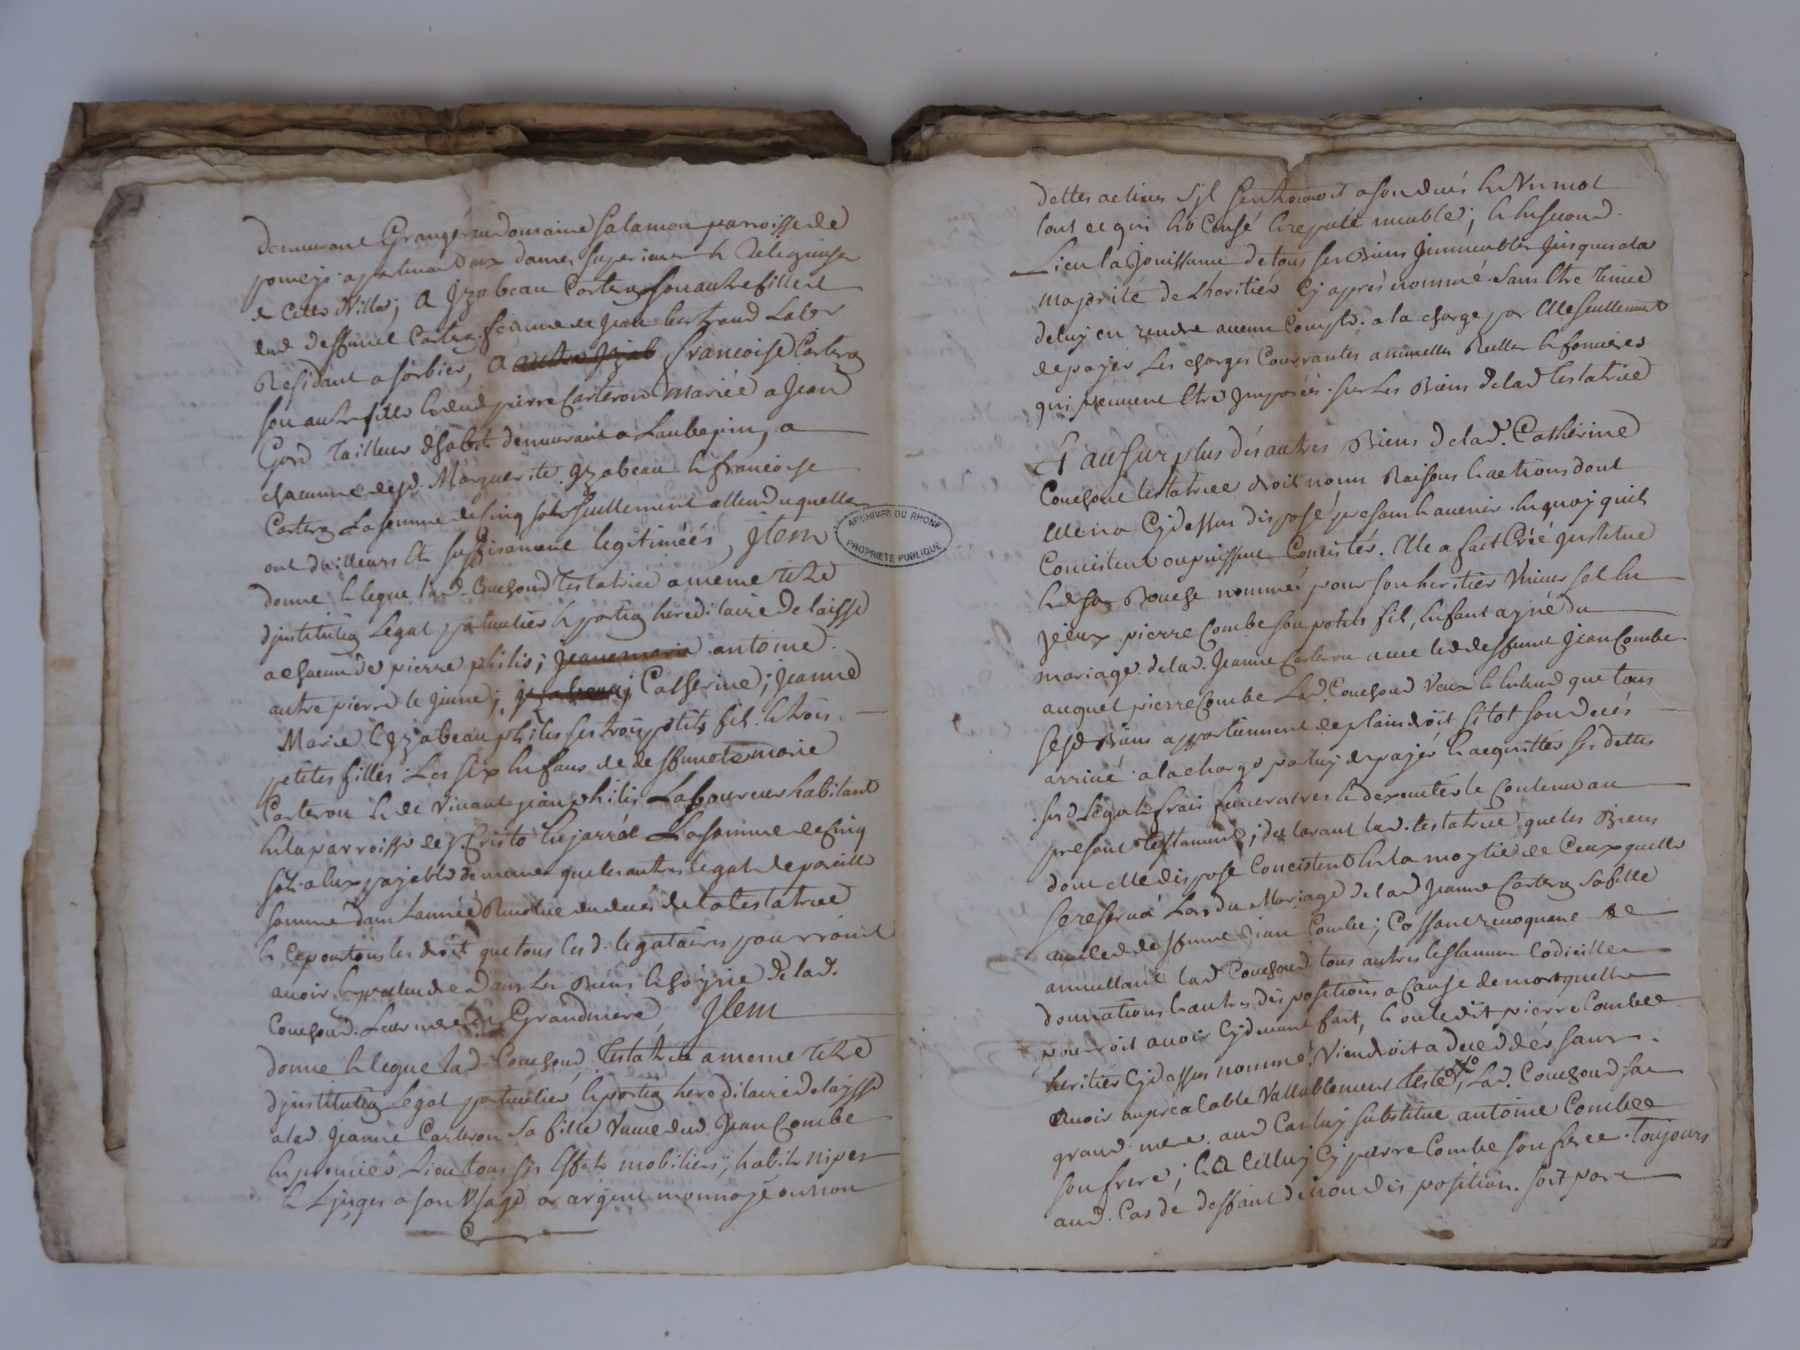 demeurant Grangér au domaine Salamon parroisse de
pomeys appartenant aux dames superieure & Religieuses
de cette Ville; A Izabeau Carteron son autre fille &
dud deffunct Carteron femme de Jean bertrand Labr
Residant a sorbier, a autre Izab francoise Carteron
son autre fille & dud pierre Carteron mariée a Jean
Gord tailleur d'habit demeurant a Laubepin, a
chacune desd. Marguerite Yzabeau & francoise
Carteron La somme de cinq sols seullement attendu quelles
ont dailleurs été suffisament legitimées, Item
donne & legue lad. Couchoud testatrice a meme titre
d'institution Legat particulier & portion hereditaire de laisse
a chacun de pierre philis; Jeanemarie antoine
autre pierre le jeune; yzabeau; Catherine; Jeanne
Marie & Yzabeau philis ses trois petits fils & trois
petites filles Les six Enfans de deffuncte marie
Carteron & de vivant jean philis Laboureur habitant
En la parroisse de St Cristo En jarrêt La somme de Cinq
sols a Eux payable de meme que les autres legats de pareille
somme dans L'année Revolue du decés de la testatrice
& ce pour tous les droit que tous lesd. legataires pourroient
avoir & pretendre dans Les Biens & hoyrie de lad.
Couchoud. Leur mere & Grandmere Item
donne & legue lad Couchoud testatrice a meme titre
d'institution Legat particulier & portion hereditaire delaisse
a lad. Jeanne Carteron Sa fille Veuve dud Jean Combe
En premier Lieu tous ses Effets mobiliers, habits nipes
& Linges a son Usage or argent monnoyé ou non
ARCHIVES DU RHONE
PROPRIÉTÉ PUBLIQUE
dettes actives s'il s'en trouvoit a son decés En Un mot
tout ce qui Est Censé & reputé meuble; & En second
Lieu la Jouissance de tous ses Biens Immeubles jusques a la
majorité de L'heritier Cy aprés nommé sans Etre tenue
de luy en rendre aucun Compte. a la charge par Elle seullement
de payer Les charges Courrantes annuelles Reelles & foncieres
qui peuvent Etre Imposées sur Les Biens de lad testatrice
Et au surplus des autres Biens de lad. Catherine
Couchoud testatrice droits noms Raisons & actions dont
Elle n'a Cy dessus disposé presents & avenir En quoy quils
Concistent ou puissent Concister. Elle a fait Créé Institué
& de sa Bouche nommé pour son heritier Universel &
pierre Combe son petits fil, Enfant ayné du
mariage de lad. Jeanne Carteron avec led deffunt Jean Combe
auquel pierre Combe Lad Couchoud Veux & Entend que tous
sesd Biens appartiennent de plain droit sitot son decés
arrivé a la charge par luy de payer & acquitter ses dettes
sesd Legats frais funeraires & d'executer le Contenu au
present testament; declarant lad. testatrice que les Biens
dont elle dispose Concistent En la moytié de Ceux quelle
se reserva Lors du Mariage de lad Jeanne Carteron sa fille
avec led deffunt Jean Combe; Cassant revoquant &
annullant lad Couchoud tous autres testamens Codicilles
donnations & autres dispositions a Cause de mort quelle
pourroit avoir Cy devant fait, & ou ledit pierre Combe
heritier Cy dessus nommé Viendroit a decedder sans
avoir au prealable Vallablement testé, Lad. Couchoud sa
grand mere aud Cas luy substitue antoine Combe
son frere; & a Celluy Cy pierre Combe son frere toujours
aud. Cas de deffaut de non disposition. soit par